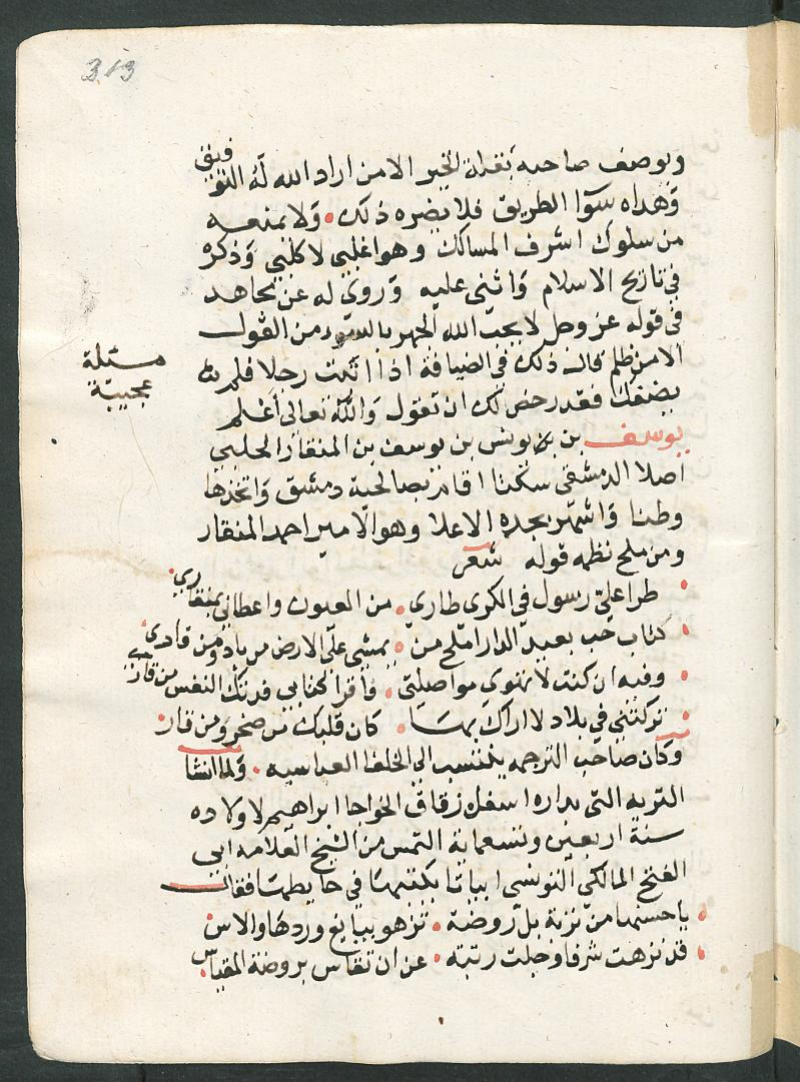 313
ويوصف صاحبه بقلة الخير الا من اراد الله له التوفيق
وهداه سوا الطريق فلا يضره ذلك ولا يمنعه
من سلوك اشرف المسالك وهو اغلبي لا كلبي وذكره
في تاريخ الاسلام واثنى عليه وروى له عن مجاهد
في قوله عز وجل لا يحب الله الجهر بالسوء من القول
الا من ظلم قال ذلك في الضيافة اذا اتيت رجلا فلم
يضفك فقد رخص لك ان تقول والله تعالى اعلم
مسئلة
عجيبة
يوسف بن يونس بن يوسف بن المنقار الحلبي
اصلا الدمشقي سكنا اقام بصالحية دمشق واتخذها
وطنا واشتهر بجده الاعلا وهو الامير احمد المنقار
ومن ملح نظمه قوله شعر
طرا علي رسول في الكرى طاري من العيون واعطاني بمنقاري
كتاب حب بعيد الدار املح من يمشي على الارض من باد ومن قاري
وفيه ان كنت لا تهوي مواصلتي واقرا كتابي فدتك النفس من قار
تركتني في بلاد لا اراك بها كان قلبك من صخر ومن قار
وكان صاحب الترجمه ينتسب الى الخلفا العباسيه ولما انشا
التربه التي بداره اسفل زقاق الخواجا ابراهيم لاولاده
سنة اربعين وتسعماية التمس من الشيخ العلامه ابي
الفتح المالكي التونسي ابياتا يكتبها في حايطها فقال
يا حسنها من تربة بل روضة تزهو بيانع وردها والاس
قد نزهت شرفا وجلت رتبته عن ان تقاس بروضة المقياس